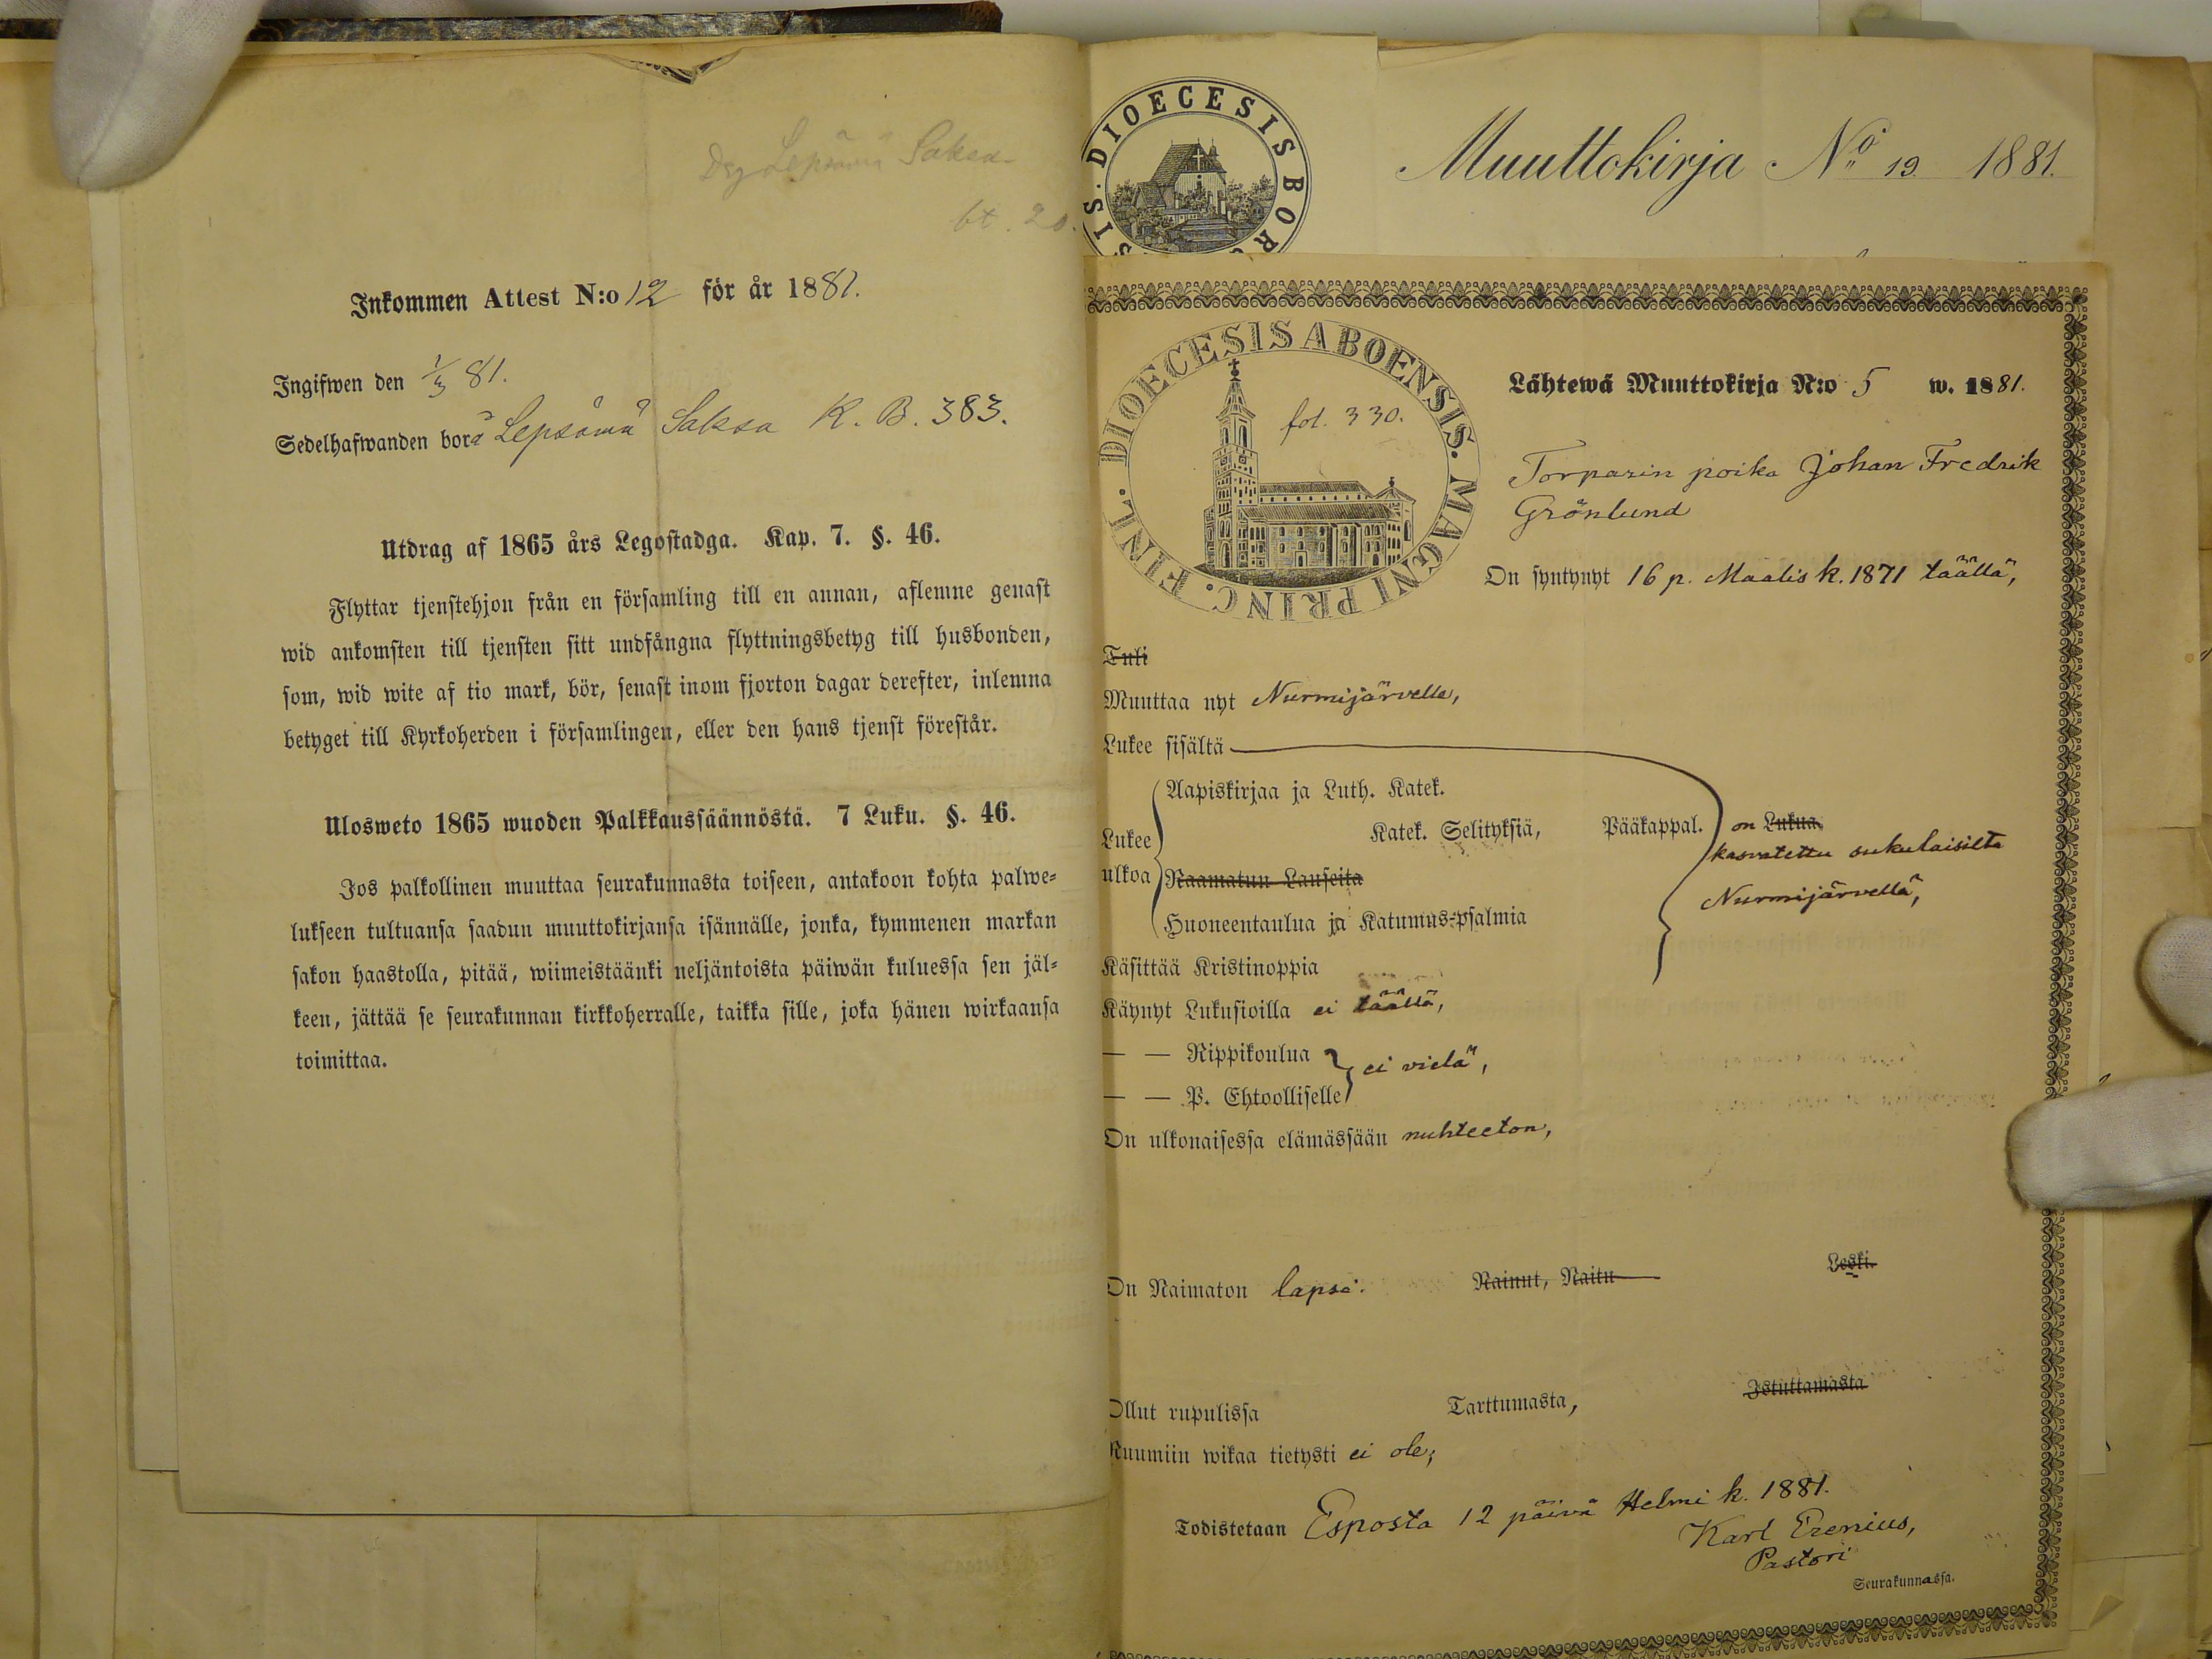 Dg Lepsämä Saksa
bt. 20.
Inkommen Attest N:o 12 för år 1881.
Ingifwen den 1/3 81.
Sedelhafwanden bor å Lepsämä Saksa K. B. 383.
Utdrag af 1865 års Legostadga. Kap. 7. §. 46.
Flyttar tjenstehjon från en församling till en annan, aflemne genast
wid ankomsten till tjensten sitt undfångna flyttningsbetyg till husbonden,
som, wid wite af tio mark, bör, senast inom fjorton dagar derefter, inlemna
betyget till Kyrkoherden i församlingen, eller den hans tjenst förestår.
Ulosweto 1865 wuoden Palkkaussäännöstä. 7 Luku. §. 46.
Jos palkollinen muuttaa seurakunnasta toiseen, antakoon kohta palwe=
lukseen tultuansa saadun muuttokirjansa isännälle, jonka, kymmenen markan
sakon haastolla, pitää, wiimeistäänki neljäntoista päiwän kuluessa sen jäl=
keen, jättää se seurakunnan kirkkoherralle, taikka sille, joka hänen wirkaansa
toimittaa.
SIS. DIOECESIS BOR
Muuttokirja No 19. 1881.
DIOECESIS ABOENSIS. MAGNI PRINC. FINL.
fol. 330.
Lähtewä Muuttokirja N:o 5 w. 1881.
Torparin poika Johan Fredrik
Grönlund
On syntynyt 16 p. Maalis k. 1871 täällä,
Tuli
Muuttaa nyt Nurmijärvelle,
Lukee sisältä
Lukee ulkoa
Aapiskirjaa ja Luth. Katek.
Katek. Selityksiä, Pääkappal.
Raamatun Lauseita
Huoneentaulua ja Katumus=psalmia
on Lukua
kasvatettu sukulaisilta
Nurmijärvellä,
Käsittää Kristinoppia
Käynyt Lukusioilla ei täällä,
— — Rippikoulua
— — P. Ehtoolliselle
ei vielä,
On ulkonaisessa elämässään nuhteeton,
On Naimaton lapsi. Nainut, Naitu Leski.
Ollut rupulissa Tarttumasta, Istuttamasta
Ruumiin wikaa tietysti ei ole;
Todistetaan Esposta 12 päivä Helmi k. 1881.
Karl Erenius,
Pastori
Seurakunnassa.